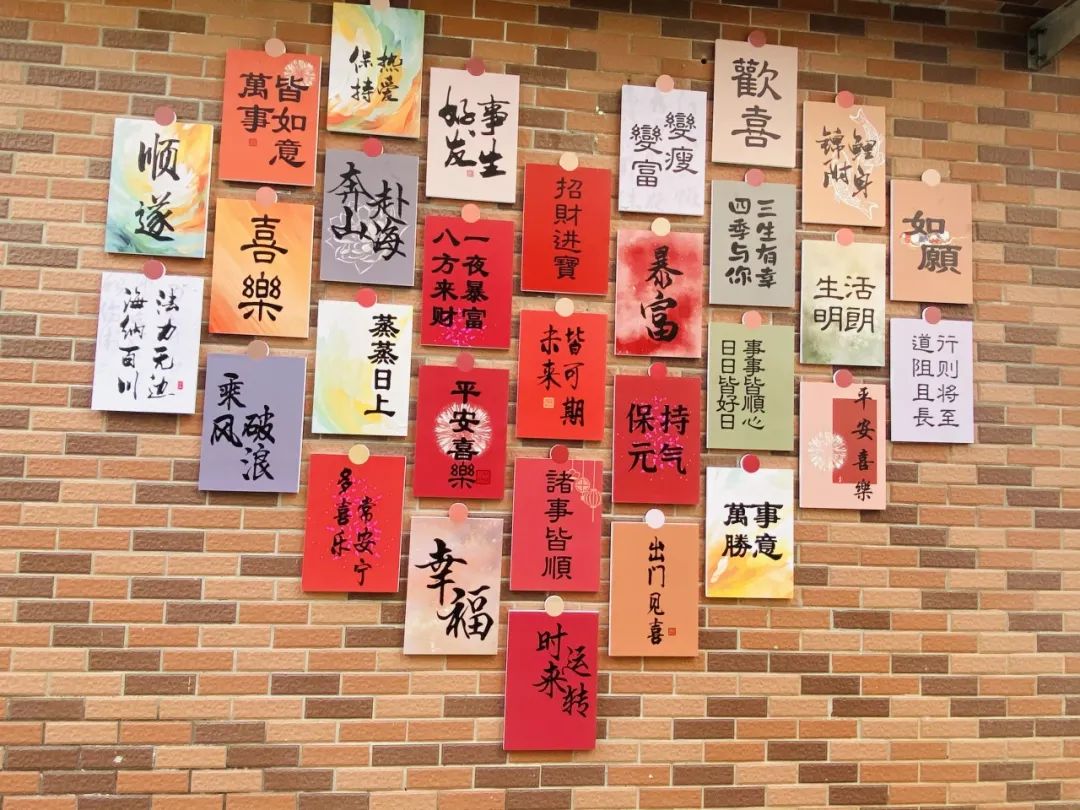 保持
热愛
萬事
皆如意
歡喜
好事
发生
變瘦
變富
锦鲤
附身
顺遂
奔山
赴海
招財进寶
三生有幸
四季与你
如願
喜樂
一夜暴富
八方来财
暴富
生活
明朗
法力无边
海纳百川
蒸蒸日上
未来
皆可期
事事皆順心
日日皆好日
道阻且長
行则将至
乘风
破浪
平安喜樂
保持
元气
平安喜樂
多喜乐
常安宁
諸事皆順
萬事
勝意
幸福
出门见喜
时来
运转